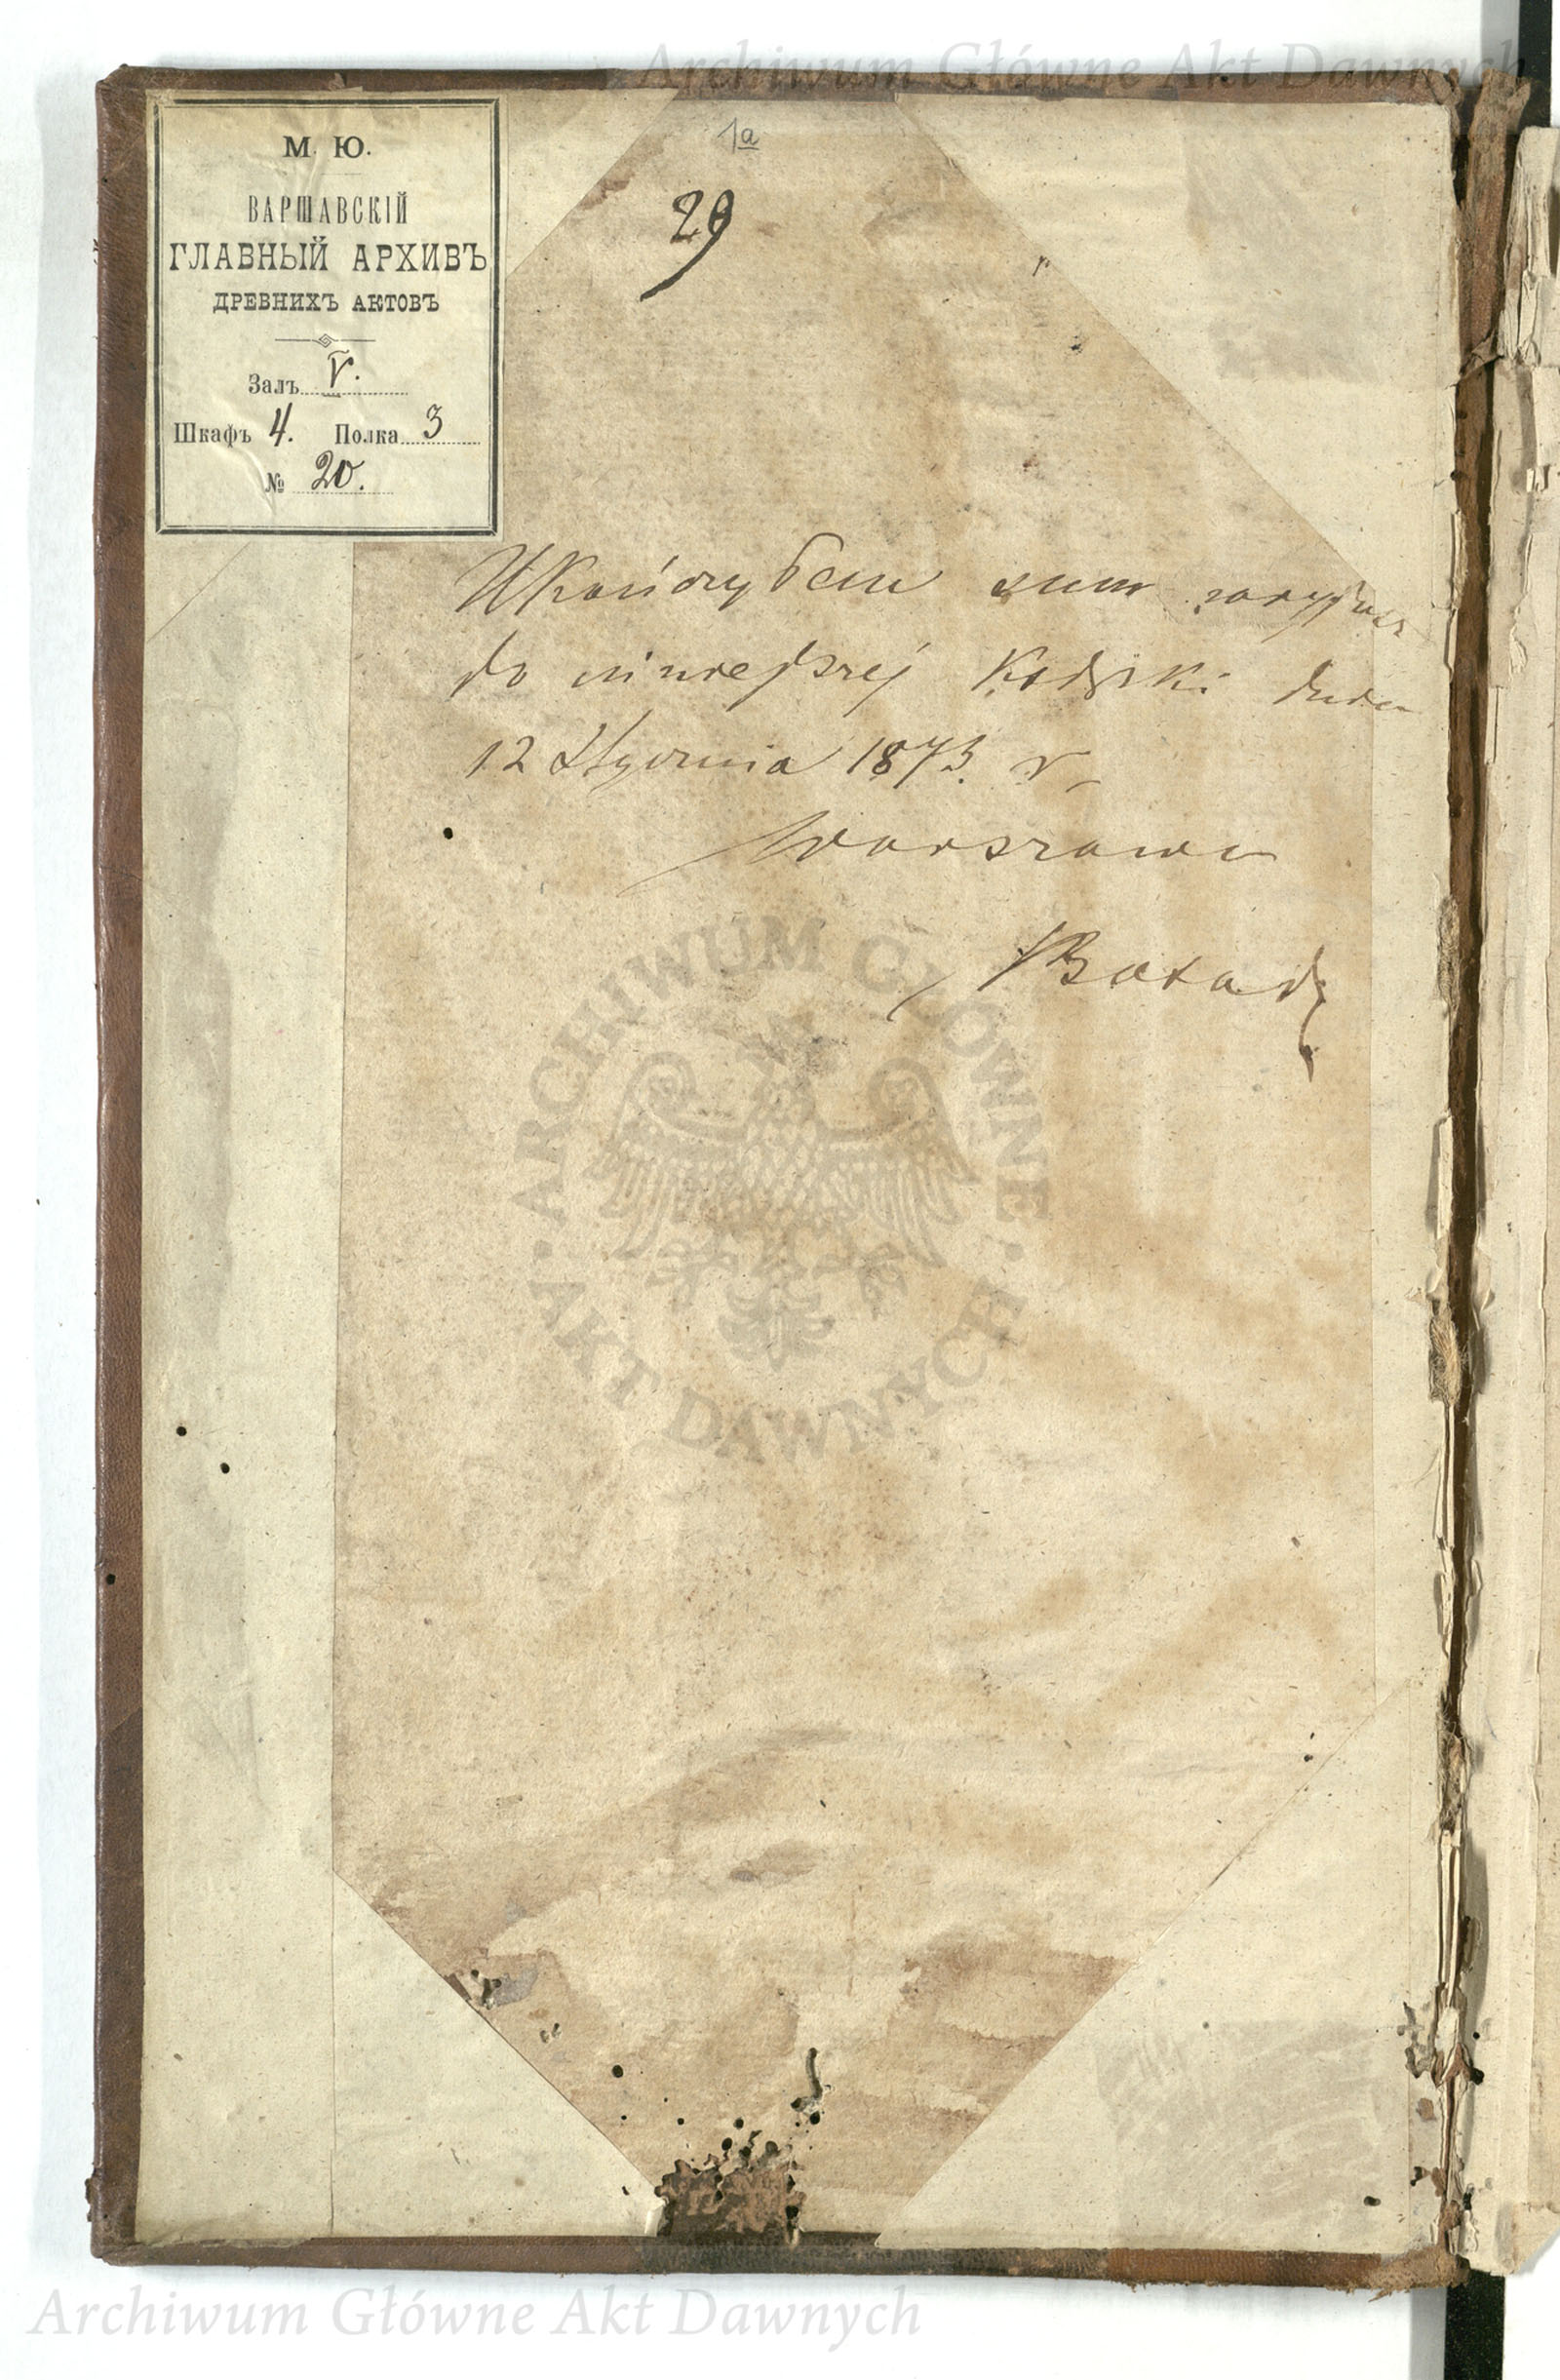 Archiwum Główne Akt Dawnych
1a
29
М. Ю.
ВАРШАВСКІЙ
ГЛАВНЫЙ АРХИВЪ
ДРЕВНИХЪ АКТОВЪ
Залъ V.
Шкафъ 4. Полка 3
№ 20.
Ukończyłem sum
do niniejszej Księski dnia
12 Stycznia 1873 r
Warszawa
ARCHIWUM GŁÓWNE
AKT DAWNYCH
Archiwum Główne Akt Dawnych